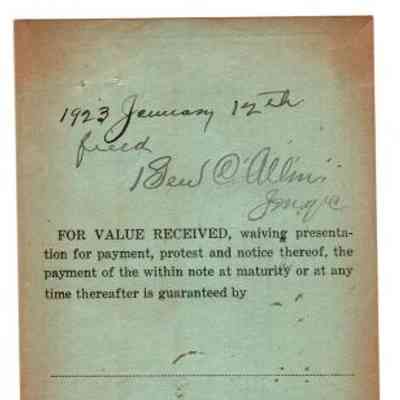 1923 January 12th
filed
Ben C. Allin
FOR VALUE RECEIVED, waiving presenta-
tion for payment, protest and notice thereof, the
payment of the within note at maturity or at any
time thereafter is guaranteed by